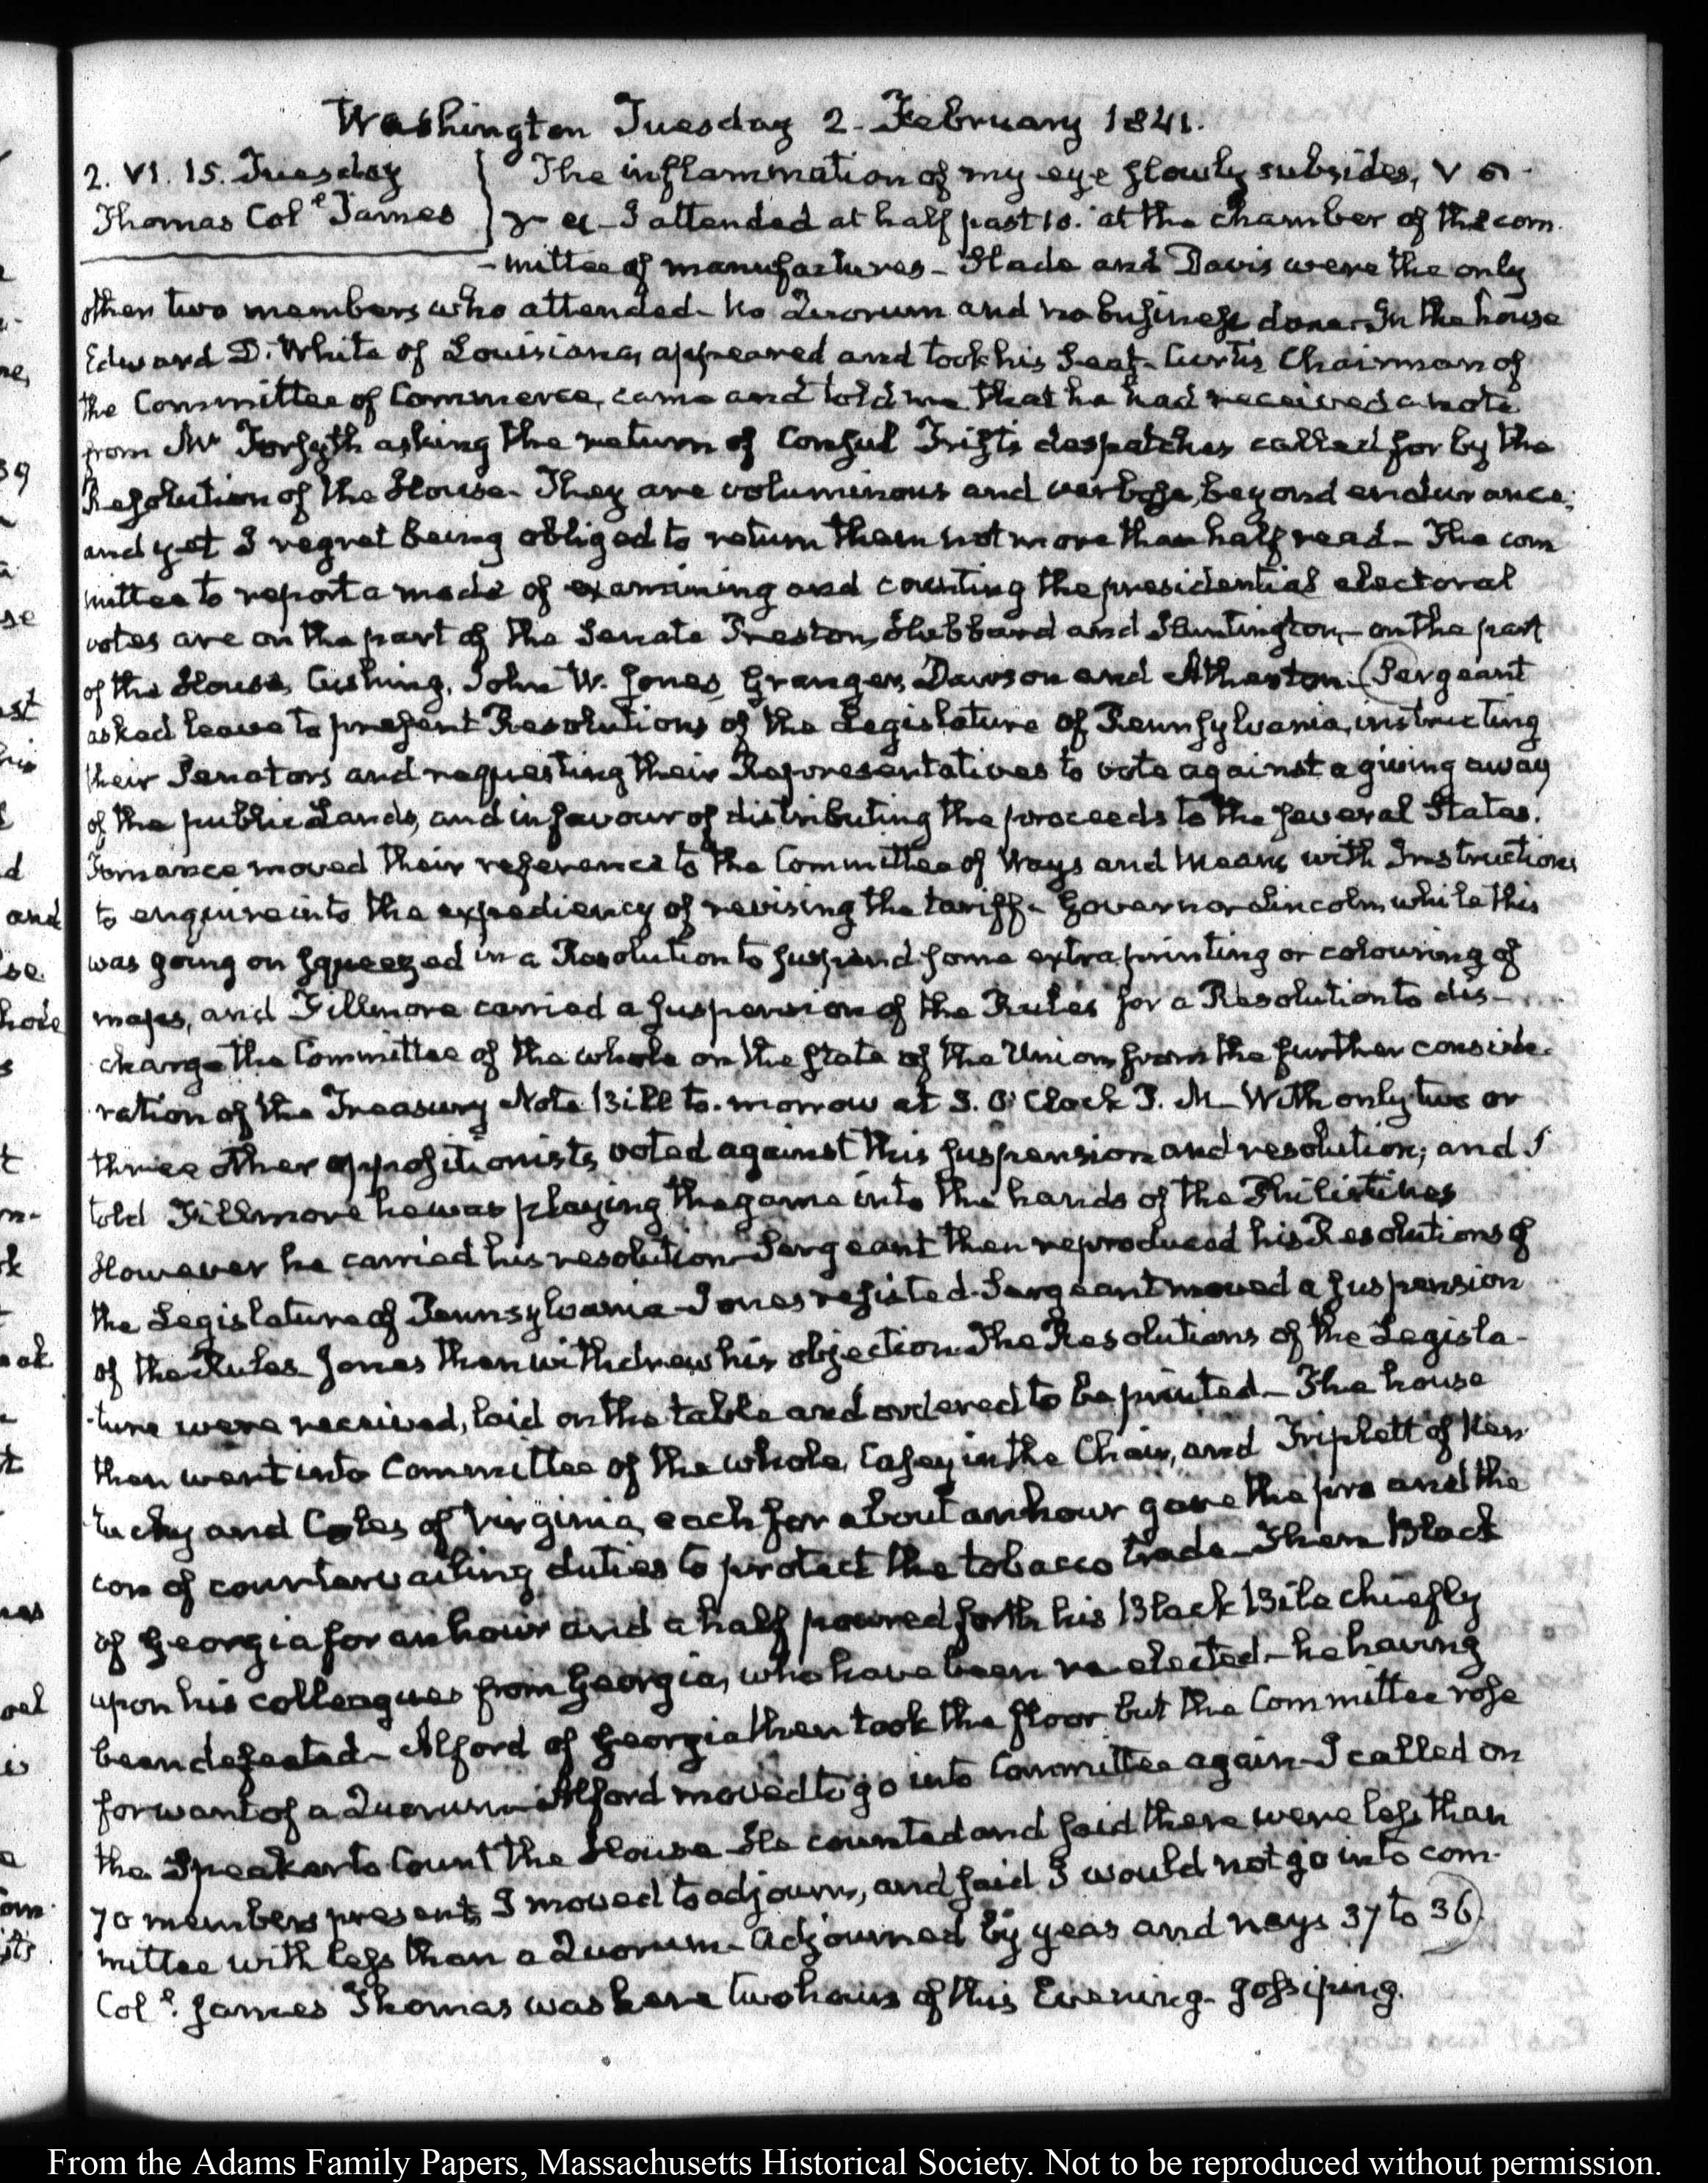 Washington Tuesday 2. February 1841.
2. VI. 15. Tuesday
Thomas Col.l James
The inflammation of my eye slowly subsides,
I attended at half past 10. at the chamber of the com
-mittee of manufactures- Slade and Davis were the only
other two members who attended- No Quorum and no business done- In the house
Edward D. White of Louisiana, appeared and took his Seat- Curtis Chairman of
the Committee of Commerce, came and told me that he had received a note
from Mr Forsyth asking the return of Consul Trist's despatches called for by the
Resolution of the House- They are voluminous and verbose, beyond endurance;
and yet I regret being obliged to return them not more than half read- The com
mittee to report a mode of examining and counting the presidential electoral
votes are on the part of the Senate Preston, Hubbard and Huntington,- on the part
of the House, Cushing, John W. Jones, Granger, Dawson and Atherton. (Sergeant
asked leave to present Resolutions of the Legislature of Pennsylvania, instructing
their Senators and requesting their Representatives to vote against a giving away
of the public Lands, and in favour of distributing the proceeds to the several States.
Fornance moved their reference to the Committee of Ways and Means with Instructions
to enquire into the expediency of revising the tariff- Governor Lincoln while this
was going on squeezed in a Resolution to suspend some extra printing or colouring of
maps, and Fillmore carried a suspension of the Rules for a Resolution to dis-
charge the Committee of the whole on the state of the Union from the further conside-
ration of the Treasury Note Bill to-morrow at 3. O'Clock P. M- With only two or
three other oppositionists, voted against this suspension and resolution; and I
told Fillmore he was playing the game into the hands of the Philistines
However he carried his resolution- Sergeant then reproduced his Resolutions of
the Legislature of Pennsylvania- Jones resisted- Sergeant moved a suspension
of the Rules- Jones then withdrew his objection- The Resolutions of the Legisla-
ture were received, laid on the table and ordered to be printed- The house
then went into Committee of the whole, Casey in the Chair, and Triplett of Ken
tucky and Coles of Virginia, each for about an hour gave the pro and the
con of countervailing duties to protect the tobacco trade- Then Black
of Georgia for an hour and a half poured forth his Black Bile chiefly
upon his colleagues from Georgia, who have been re-elected- he having
been defeated- Alford of Georgia then took the floor but the Committee rose
for want of a Quorum- Alford moved to go into Committee again- I called on
the Speaker to Count the House- He counted and said there were less than
70 members present, I moved to adjourn, and said I would not go into com-
mittee with less than a Quorum- Adjourned by yeas and nays 37 to 36).
Col.l James Thomas was here two hours of this Evening- gossiping.
From the Adams Family Papers, Massachusetts Historical Society. Not to be reproduced without permission.